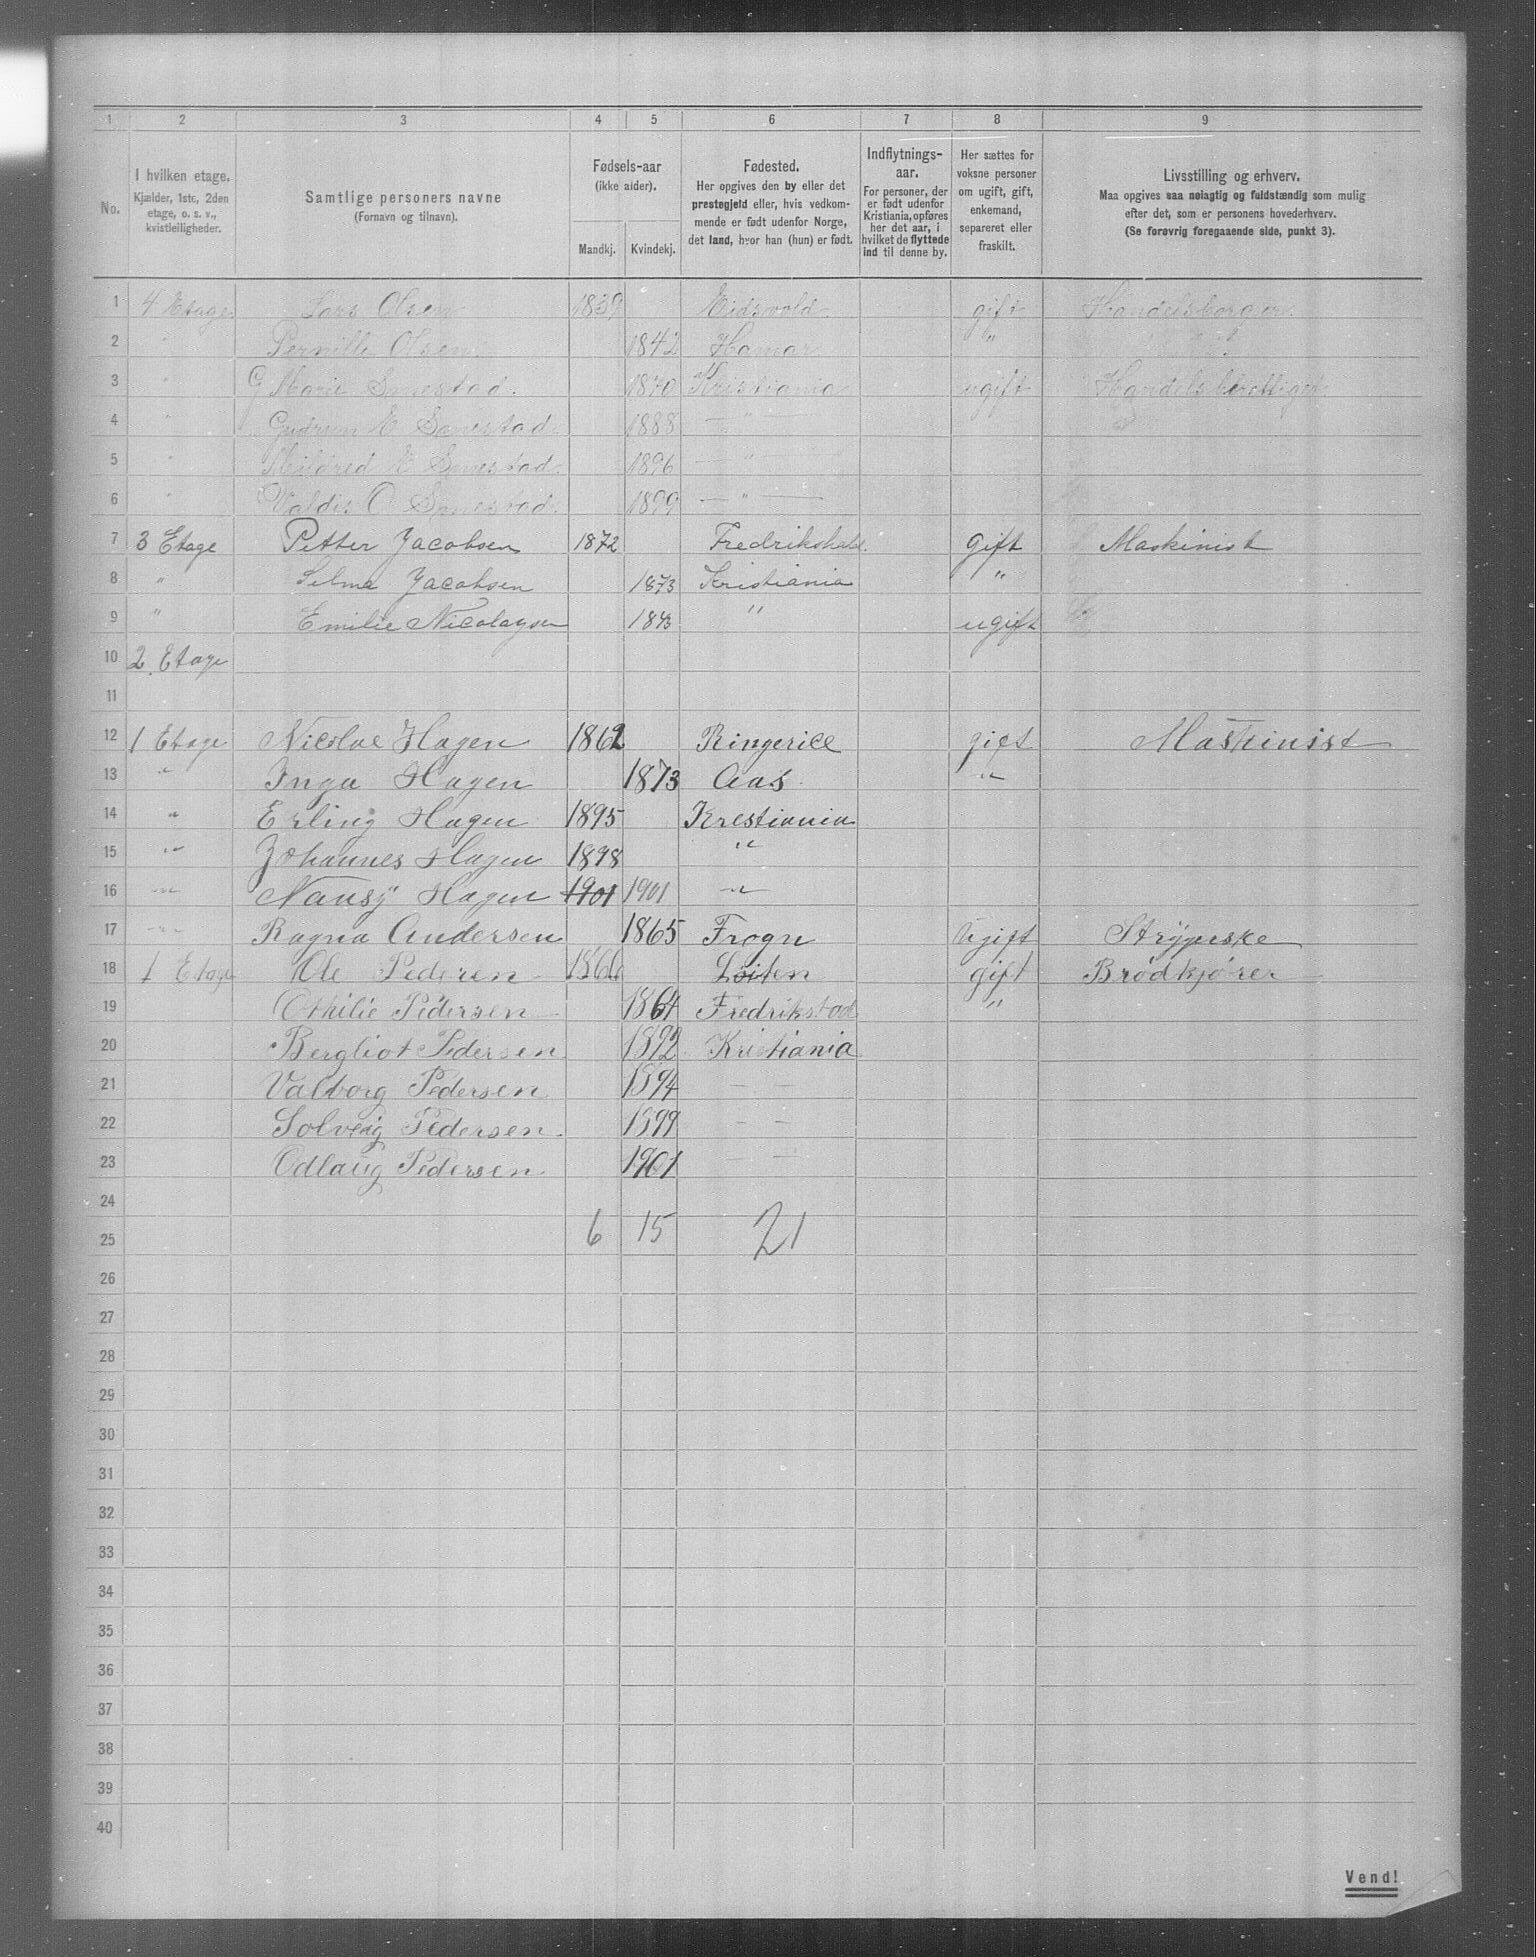 1 2 3 4 5 6 7 8 9
No.
I hvilken etage.
Kjælder, 1ste, 2den
etage, o. s. v.,
kvistleiligheder.
Samtlige personers navne
(Fornavn og tilnavn).
Fødsels-aar
(ikke alder).
Mandkj. Kvindekj.
Fødested.
Her opgives den by eller det
prestegjeld eller, hvis vedkom-
mende er født udenfor Norge,
det land, hvor han (hun) er født.
Indflytnings-
aar.
For personer, der
er født udenfor
Kristiania, opføres
her det aar, i
hvilket de flyttede
ind til denne by.
Her sættes for
voksne personer
om ugift, gift,
enkemand,
separeret eller
fraskilt.
Livsstilling og erhverv.
Maa opgives saa nøiagtig og fuldstændig som mulig
efter det, som er personens hovederhverv.
(Se forøvrig foregaaende side, punkt 3).
1 4 Etage Lars Olsen 1839 Eidsvold gift Handelsborger
2 " Pernille Olsen 1842 Hamar "
3 " G Marie Smestad. 1870 Kristiania ugift
4 " Gudrun E Smestad. 1888 — " —
5 " Mildred E Smestad. 1896 — " —
6 " Valdis O Smestad. 1899 — " —
7 3 Etage Petter Jacobsen 1872 Fredrikshald gift Maskinist
8 " Selma Jacobsen 1873 Kristiania "
9 " Emilie Nicolaysen 1873 " ugift
10 2 Etage
11
12 1 Etage Nicolae Hagen 1862 Ringerice gift Maskinist
13 " Inga Hagen 1873 Aas "
14 " Erling Hagen 1895 Krestiania
15 " Johannes Hagen 1898 "
16 " Nansÿ Hagen 1901 1901 "
17 " Ragna Andersen 1865 Frogn Ugift Strygerske
18 1 Etage Ole Pedersen 1866 Løiten gift Brødkjører
19 Othilie Pedersen 1864 Fredrikstad "
20 Bergliot Pedersen 1892 Kristiania
21 Valborg Pedersen 1894 — —
22 Solveig Pedersen. 1899 — —
23 Odlaug Pedersen 1901 — —
24
6 15 21
25
26
27
28
29
30
31
32
33
34
35
36
37
38
39
40
Vend!